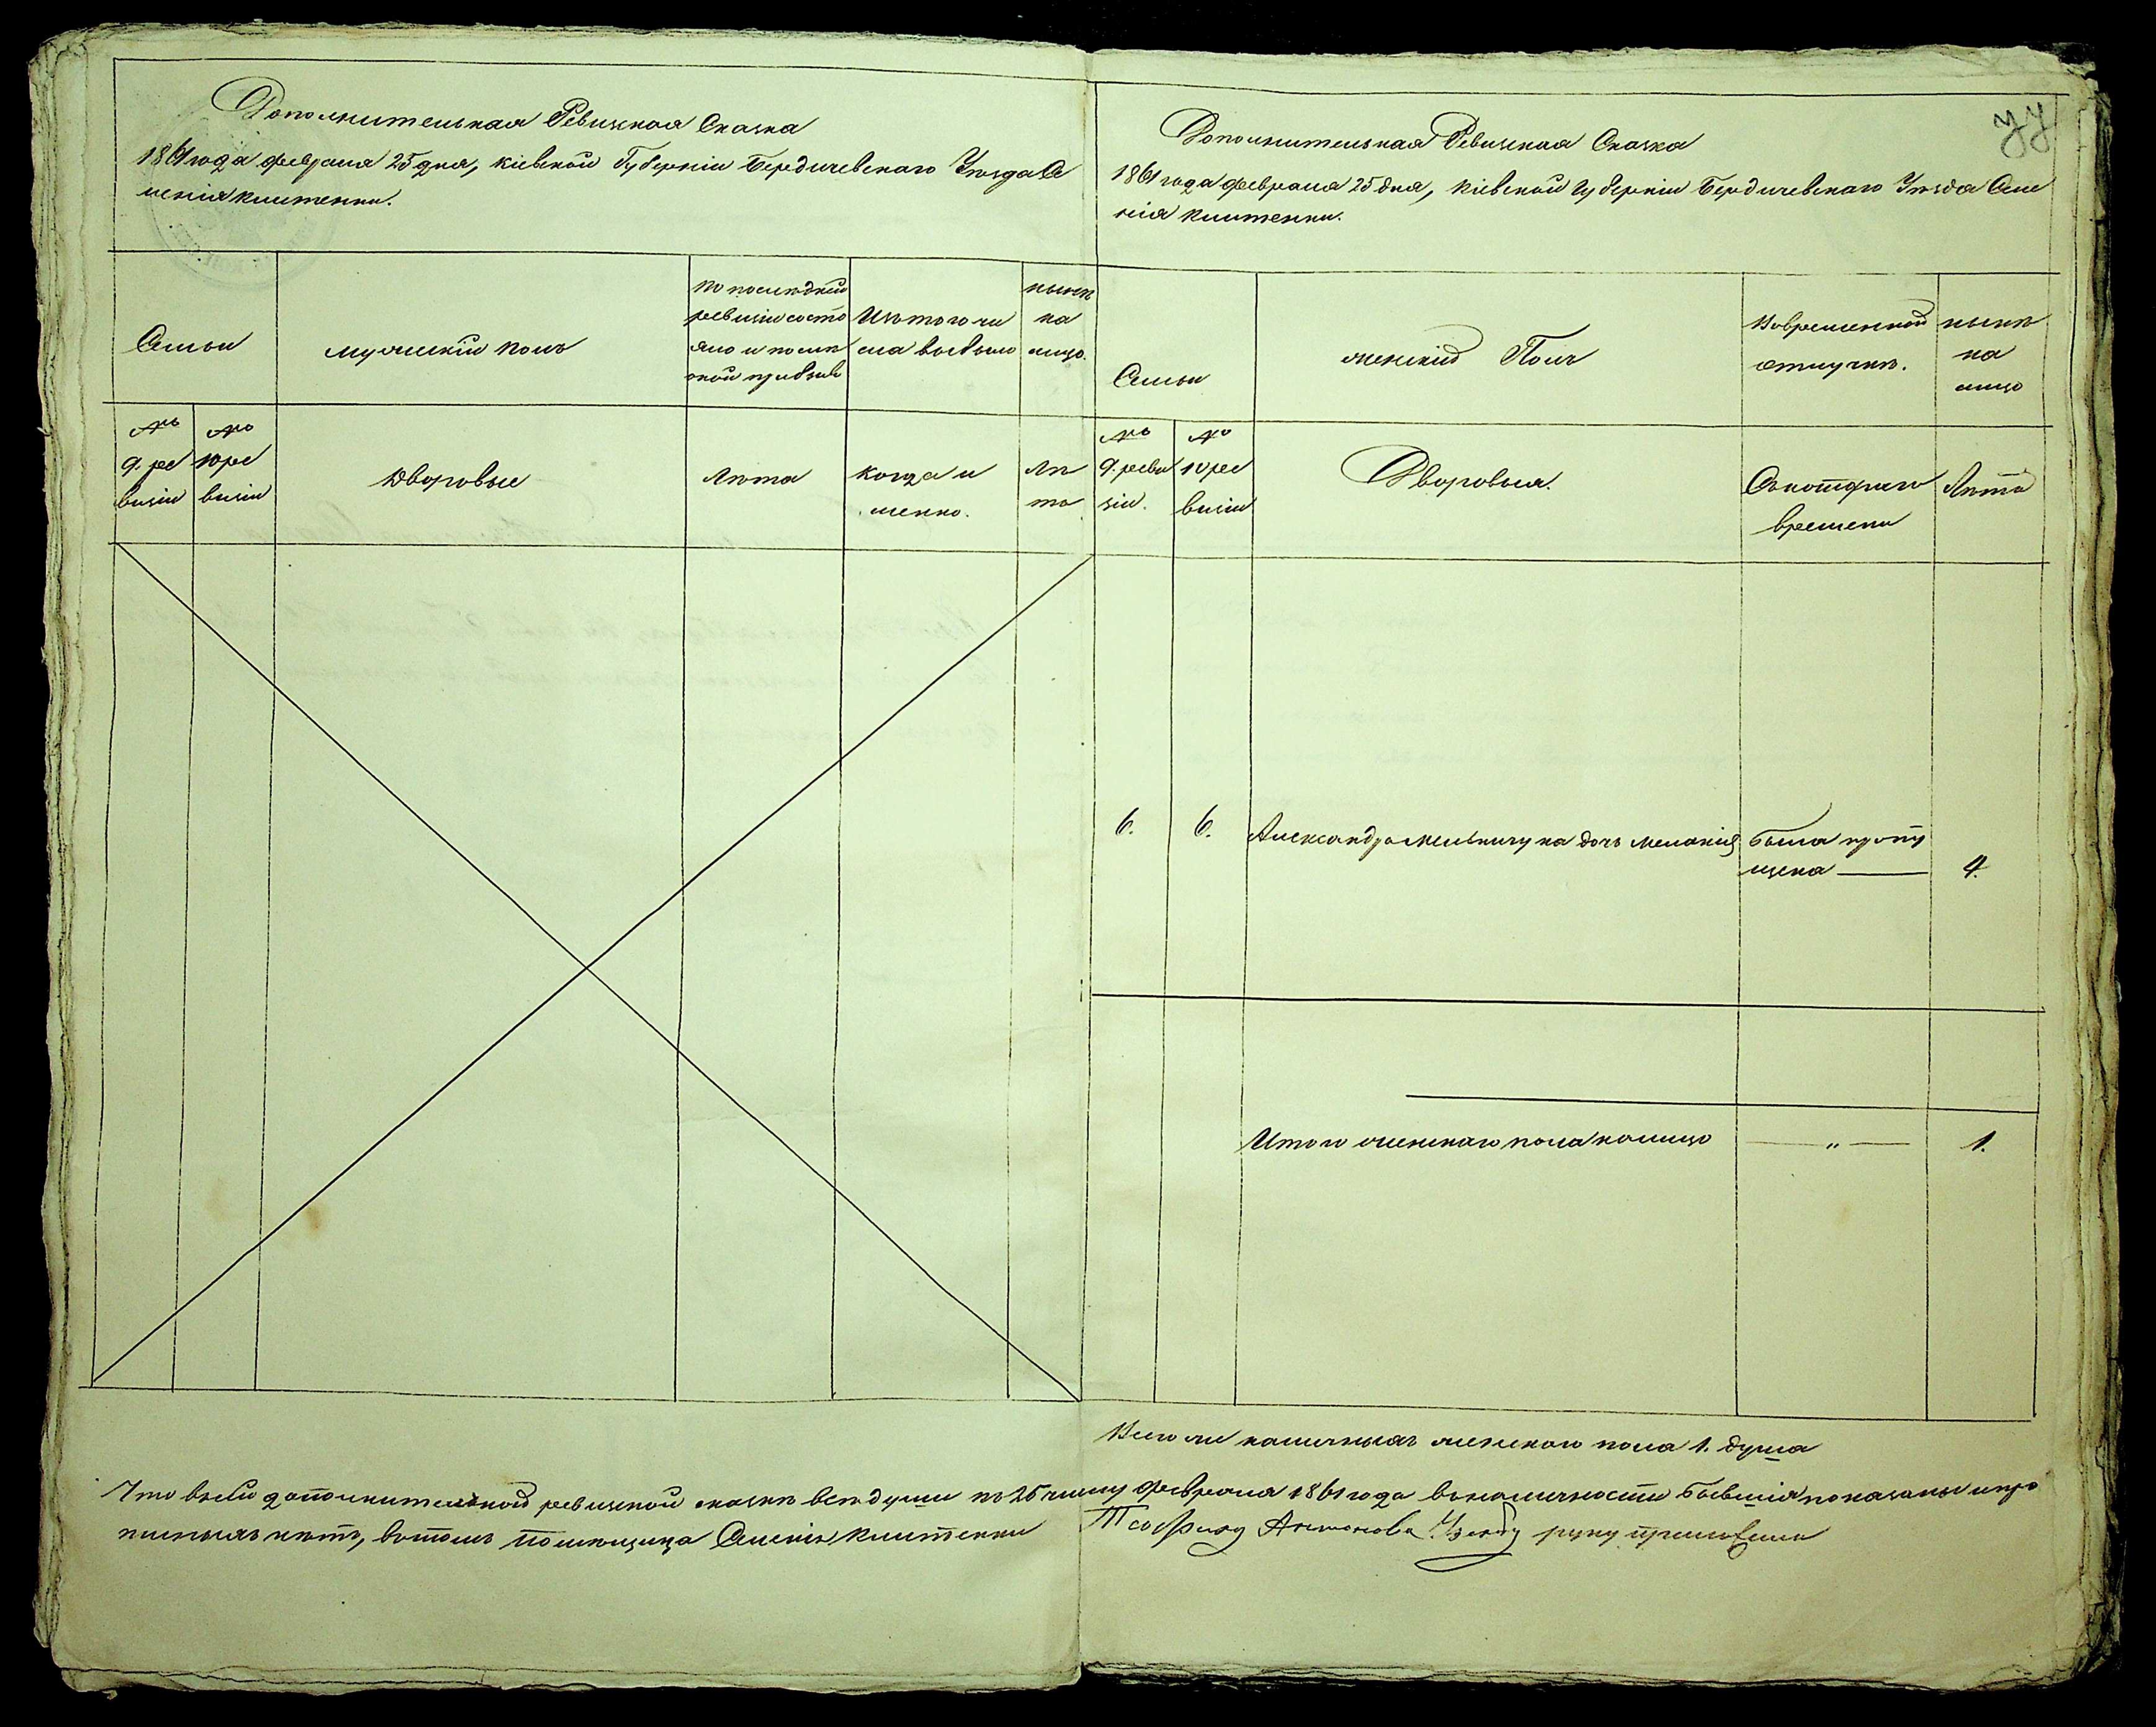 Дополнительная Ревизская Сказка
1861 года февраля 25 дня, Кіевской Губерніи Бердичевскаго Уѣзда Се
ленія Клитенки.
Семьи
мужескій полъ
по послѣдней
ревизіи состо
яло и послѣ
оной прибыло
Изъ того чи
сла выбыло
нынѣ
на
лицо.
№
9. ре
визіи
№
10 ре
визіи
Дворовые
Лѣта
когда и
менно.
Лѣ
та
Дополнительная Ревизская Сказка
1861 года февраля 25 дня, Кіевской Губерніи Бердичевскаго Уѣзда Селе
нія Клитенки.
Семьи
женскій Полъ
Во временной
отлучкѣ.
нынѣ
на
лицо
№
9. реви
зіи.
№
10 ре
визіи
Дворовыя.
Съ котораго
времени
Лѣта
6. 6. Александра Мельничука дочь Меланія была пропу
щена 4.
Итого женскаго пола налицо " 1.
Всего ли наличныхъ женскаго пола 1. душа
Что въ сей дополнительной ревизской сказкѣ всѣ души по 25 число февраля 1861 года въ наличности бывшія показаны и про
писныхъ нѣтъ, въ томъ помѣщица Селенія Клитенки
Антонова руку приложила